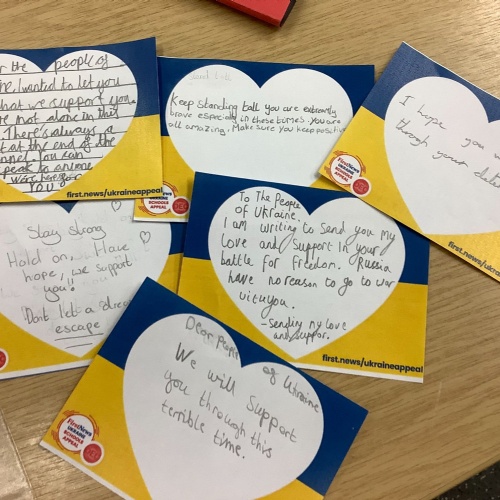 r the people of
ne. I wanted to let you
hat we support you
re not alone in this
There's always a
t at the end of the
nnel. You can
peak to anyone
were here for
YOU
first.news/ukraineappeal
Keep standing tall you are extremly
brave especialy in these times. You are
all amazing. Make sure you keep positive
FirstNews
UKRAINE
SCHOOLS
APPEAL
I hope you
through your
FirstNews
UKRAINE
SCHOOLS
APPEAL
first.news/ukrain
Stay Strong
Hold on. Have
hope, we support
you!
Dont let a
escape
To The People
of Ukraine.
I am writing to send you my
love and support in your
battle for freedom. Russia
have no reason to go to war
vit uyou.
-Sending my love
and suppor.
first.news/ukraineappeal
Dear People of Ukraine
We will support
you through this
terrible time.
FirstNews
UKRAINE
SCHOOLS
APPEAL